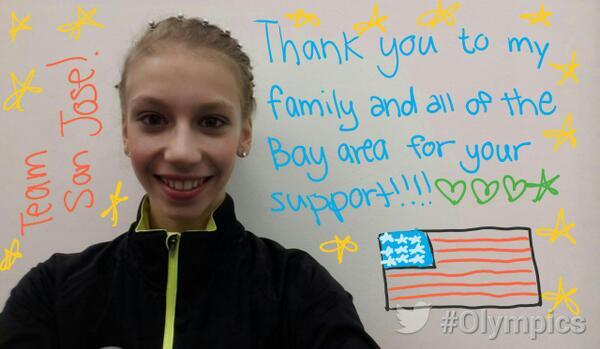 Team
San Jose!
Thank you to my
family and all of the
Bay area for your
support!!!!
#Olympics